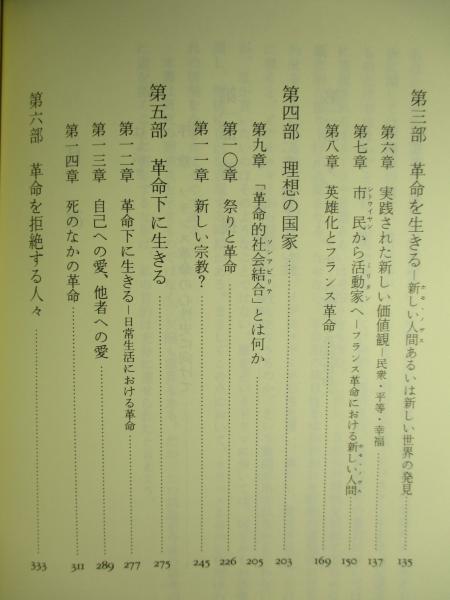 第三部　革命を生きる—新しい人間あるいは新しい世界の発見……135
第六章　実践された新しい価値観—民衆・平等・幸福……137
第七章　市民から活動家へ—フランス革命における新しい人間……150
第八章　英雄化とフランス革命……169
第四部　理想の国家……203
第九章　「革命的社会結合」とは何か……205
第一〇章　祭りと革命……226
第一一章　新しい宗教？……245
第五部　革命下に生きる……275
第一二章　革命下に生きる—日常生活における革命……277
第一三章　自己への愛、他者への愛……289
第一四章　死のなかの革命……311
第六部　革命を拒絶する人々……333